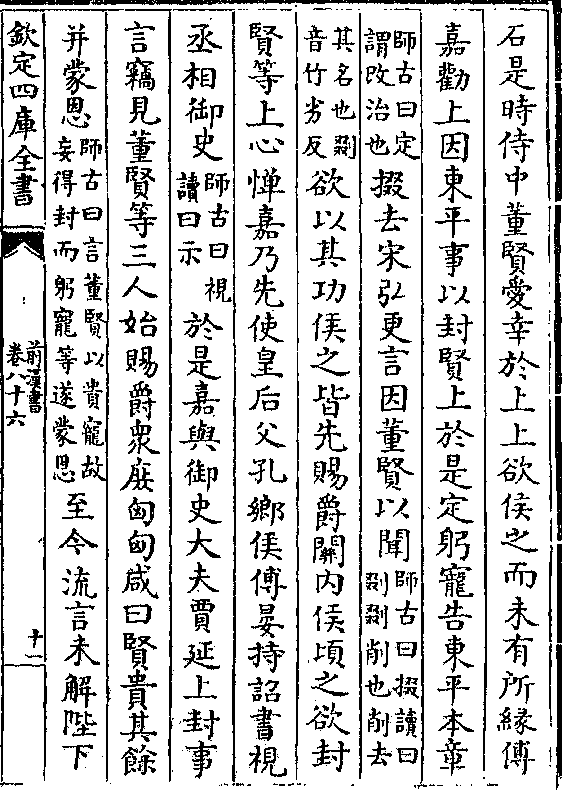 石是時侍中董賢愛幸於上上欲侯之而未有所緣傅
嘉勸上因東平事以封賢上於是定躬寵告東平本章
師古曰定
謂改治也
掇去宋弘更言因董賢以聞
師古曰掇讀曰
剟剟削也削去
其名也剟
音竹劣反
欲以其功侯之皆先賜爵關內侯頃之欲封
賢等上心憚嘉乃先使皇后父孔鄉侯傅晏持詔書視
丞相御史
師古曰視
讀曰示
於是嘉與御史大夫賈延上封事
言竊見董賢等三人始賜爵衆庻匈匈咸曰賢貴其餘
并蒙恩
師古曰言董賢以貴寵故
妄得封而躬寵等遂蒙恩
至今流言未解陛下
欽定四庫全書
前漢書
卷八十六
十一